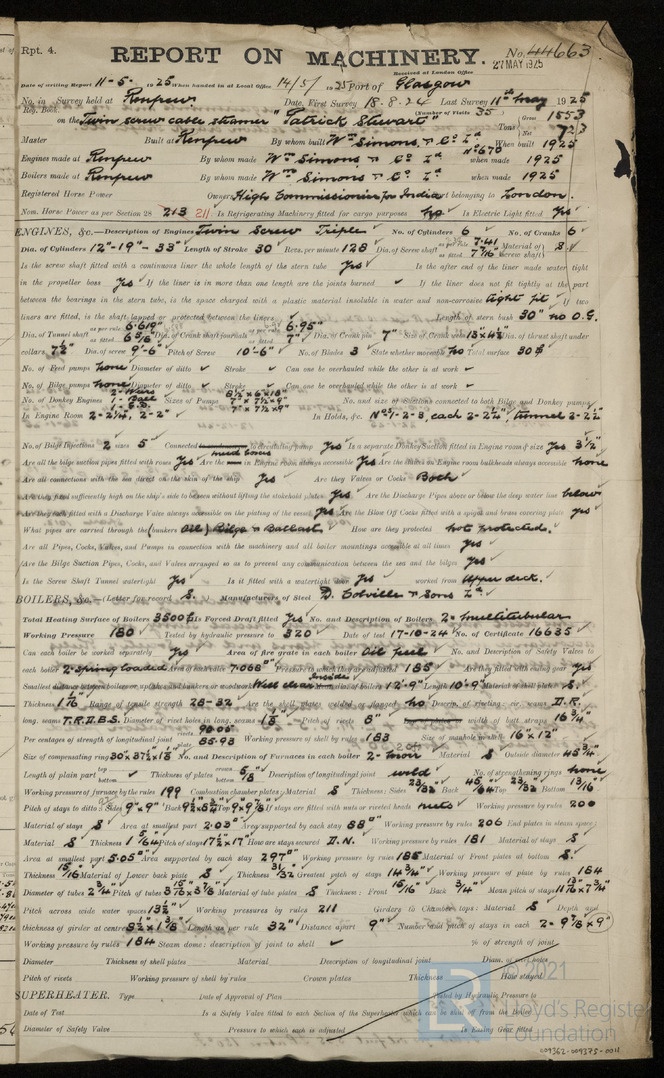 Rpt. 4.
REPORT ON MACHINERY.
No. 44663
Received at London Office
27 MAY 1925
Date of writing Report 11-5- 1925 When handed in at Local Office 14/5/ 1925 Port of Glasgow
No. in Survey held at Renfrew Date, First Survey 18-8-24 Last Survey 11th May 1925
Reg. Book. (Number of Visits 35)
on the Twin screw cable steamer "Patrick Stewart" Tons Gross 1553 Net 723
Master Built at Renfrew By whom built Wm Simons & Co Ld No 670 When built 1925
Engines made at Renfrew By whom made Wm Simons & Co Ld when made 1925
Boilers made at Renfrew By whom made Wm Simons & Co Ld when made 1925
Registered Horse Power Owners High Commissioner for India Port belonging to London.
Nom. Horse Power as per Section 28 213 211 Is Refrigerating Machinery fitted for cargo purposes No Is Electric Light fitted Yes
ENGINES, &c.—Description of Engines Twin Screw Triple No. of Cylinders 6 No. of Cranks 6
Dia. of Cylinders 12"-19"-33" Length of Stroke 30 Revs. per minute 128 Dia. of Screw shaft as per rule 7.41 as fitted 7 7/16" Material of screw shaft S
Is the screw shaft fitted with a continuous liner the whole length of the stern tube Yes Is the after end of the liner made water tight
in the propeller boss Yes If the liner is in more than one length are the joints burned If the liner does not fit tightly at the part
between the bearings in the stern tube, is the space charged with a plastic material insoluble in water and non-corrosive tight fit If two
liners are fitted, is the shaft lapped or protected between the liners Length of stern bush 30" no O.G.
Dia. of Tunnel shaft as per rule 6.619" as fitted 6 5/8" Dia. of Crank shaft journals as per rule 6.95" as fitted 7" Dia. of Crank pin 7" Size of Crank webs 13"x4½" Dia. of thrust shaft under
collars 7½" Dia. of screw 9'-6" Pitch of Screw 10'-6" No. of Blades 3 State whether moveable No Total surface 30
No. of Feed pumps none Diameter of ditto Stroke Can one be overhauled while the other is at work
No. of Bilge pumps none Diameter of ditto Stroke Can one be overhauled while the other is at work
No. of Donkey Engines 2-Weirs 1-Ball Sizes of Pumps 8½"x6"x18" 7"x7½"x9" 7"x7½"x9" No. and size of Suctions connected to both Bilge and Donkey pumps
In Engine Room 2-2¼", 2-2" In Holds, &c. Nos 1-2-3, each 2-2¼", tunnel 2-2½"
No. of Bilge Injections 2 sizes 5 Connected to circulating pump Yes Is a separate Donkey Suction fitted in Engine room & size Yes 3½"
Are all the bilge suction pipes fitted with roses Yes Are the mud boxes in Engine room always accessible Yes Are the sluices on Engine room bulkheads always accessible none
Are all connections with the sea direct on the skin of the ship Yes Are they Valves or Cocks Both
Are they fitted sufficiently high on the ship's side to be seen without lifting the stokehold plates Yes Are the Discharge Pipes above or below the deep water line below
Are they each fitted with a Discharge Valve always accessible on the plating of the vessel Yes Are the Blow Off Cocks fitted with a spigot and brass covering plate yes
What pipes are carried through the bunkers Oil Bilge & Ballast How are they protected not protected.
Are all Pipes, Cocks, Valves, and Pumps in connection with the machinery and all boiler mountings accessible at all times yes
Are the Bilge Suction Pipes, Cocks, and Valves arranged so as to prevent any communication between the sea and the bilges Yes
Is the Screw Shaft Tunnel watertight Yes Is it fitted with a watertight door Yes worked from Upper deck.
BOILERS, &c.—(Letter for record S.) Manufacturers of Steel D. Colville & Sons Ld.
Total Heating Surface of Boilers 3500 Is Forced Draft fitted Yes No. and Description of Boilers 2-multitubular
Working Pressure 180 Tested by hydraulic pressure to 320 Date of test 17-10-24 No. of Certificate 16635
Can each boiler be worked separately Yes Area of fire grate in each boiler Oil fuel No. and Description of Safety Valves to
each boiler 2-spring loaded Area of each valve 7.068" Pressure to which they are adjusted 185 Are they fitted with easing gear Yes
Smallest distance between boilers or uptakes and bunkers or woodwork Well clear Inside dia. of boilers 12'-9" Length 10'-9" Material of shell plates S.
Thickness 1 1/16 Range of tensile strength 28-32 Are the shell plates welded or flanged no Descrip. of riveting: cir. seams D.R.
long. seams T.R.D.B.S. Diameter of rivet holes in long. seams 1 1/8 Pitch of rivets 8" width of butt straps 16¾"
Per centages of strength of longitudinal joint rivets plate 85.93 Working pressure of shell by rules 183 Size of manhole in shell 16"x12"
Size of compensating ring 30"x37½"x1⅛ No. and Description of Furnaces in each boiler 2- Material S Outside diameter 45¾"
Length of plain part top bottom Thickness of plates crown bottom 5/8 Description of longitudinal joint weld No. of strengthening rings none
Working pressure of furnace by the rules 199 Combustion chamber plates: Material S Thickness: Sides 23/32 Back 45/64 Top 23/32 Bottom 13/16
Pitch of stays to ditto: Sides 9"x9" Back Top 9"x9⅞ If stays are fitted with nuts or riveted heads nuts Working pressure by rules 200
Material of stays S Area at smallest part 2.03" Area supported by each stay 88" Working pressure by rules 206 End plates in steam space:
Material S Thickness 1 5/64 Pitch of stays 17½"x17" How are stays secured D.N. Working pressure by rules 181 Material of stays S
Area at smallest part 5.05" Area supported by each stay 297" Working pressure by rules 185 Material of Front plates at bottom S.
Thickness 15/16 Material of Lower back plate S Thickness 31/32 Greatest pitch of stays 14¾" Working pressure of plate by rules 184
Diameter of tubes 2¾" Pitch of tubes Material of tube plates S Thickness: Front 15/16" Back ¾" Mean pitch of stays
Pitch across wide water spaces 13½" Working pressures by rules 211 Girders to Chamber tops: Material S Depth and
thickness of girder at centre 8½"x1⅜ Length as per rule 32" Distance apart 9" Number and pitch of stays in each 2- 9⅞ x 9"
Working pressure by rules 184 Steam dome: description of joint to shell % of strength of joint
Diameter Thickness of shell plates Material Description of longitudinal joint Diam. of rivet holes
Pitch of rivets Working pressure of shell by rules Crown plates Thickness How stayed
SUPERHEATER. Type Date of Approval of Plan Tested by Hydraulic Pressure to
Date of Test Is a Safety Valve fitted to each Section of the Superheater which can be shut off from the Boiler
Diameter of Safety Valve Pressure to which each is adjusted Is Easing Gear fitted
© 2021
LR
Lloyd's Register
Foundation
009362-009375-0011